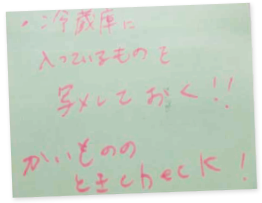 ・冷蔵庫に
入っているものを
写メしておく!!
かいものの
ときcheck!